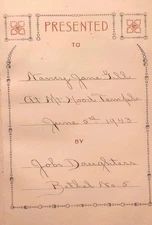 PRESENTED
TO
Nancy Jane Gill
At Mt. Hood Temple
June 5th 1943
BY
Job's Daughters
Bethel No. 5